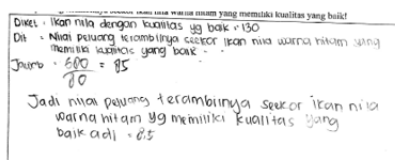 warna hitam yang memiliki kualitas yang baik!
Diket : Ikan nila dengan kualitas yg baik : 130
Dit : Nilai peluang terambilnya seekor Ikan nila warna hitam yang
memiliki kualitas yang baik
Jawab : 680 = 85
80
Jadi nilai peluang terambilnya seekor ikan nila
warna hitam yg memiliki kualitas yang
baik adl = 8.5